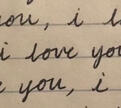 you, i l
i love you
e you, i